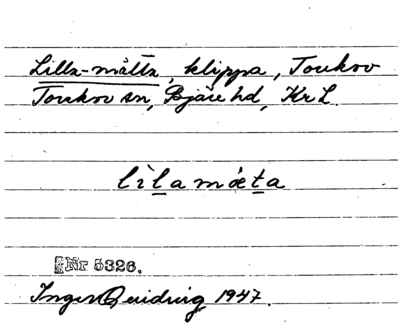 Lilla-mätta, klippa, Torekov
Torekov sn, Bjäre hd, Kr L.
lìlamǽta
Nr 5326.
Inger 1947.